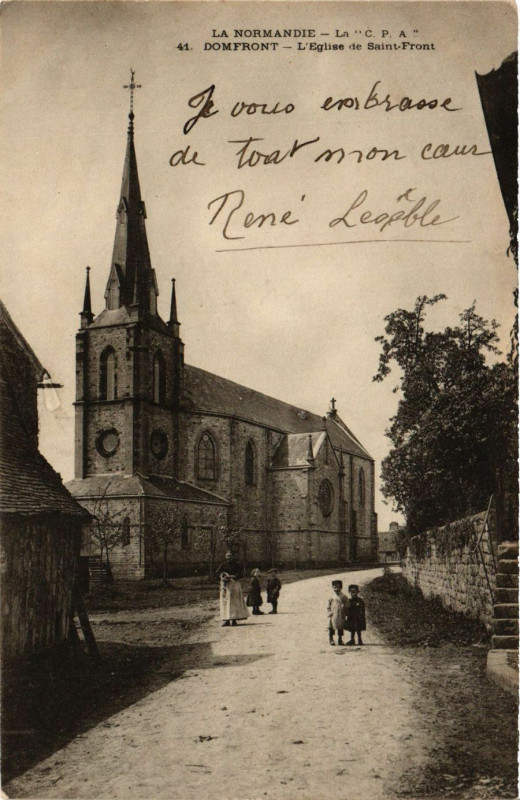 LA NORMANDIE — La "C. P. A"
41. DOMFRONT — L'Eglise de Saint-Front
Je vous embrasse
de tout mon cœur
René